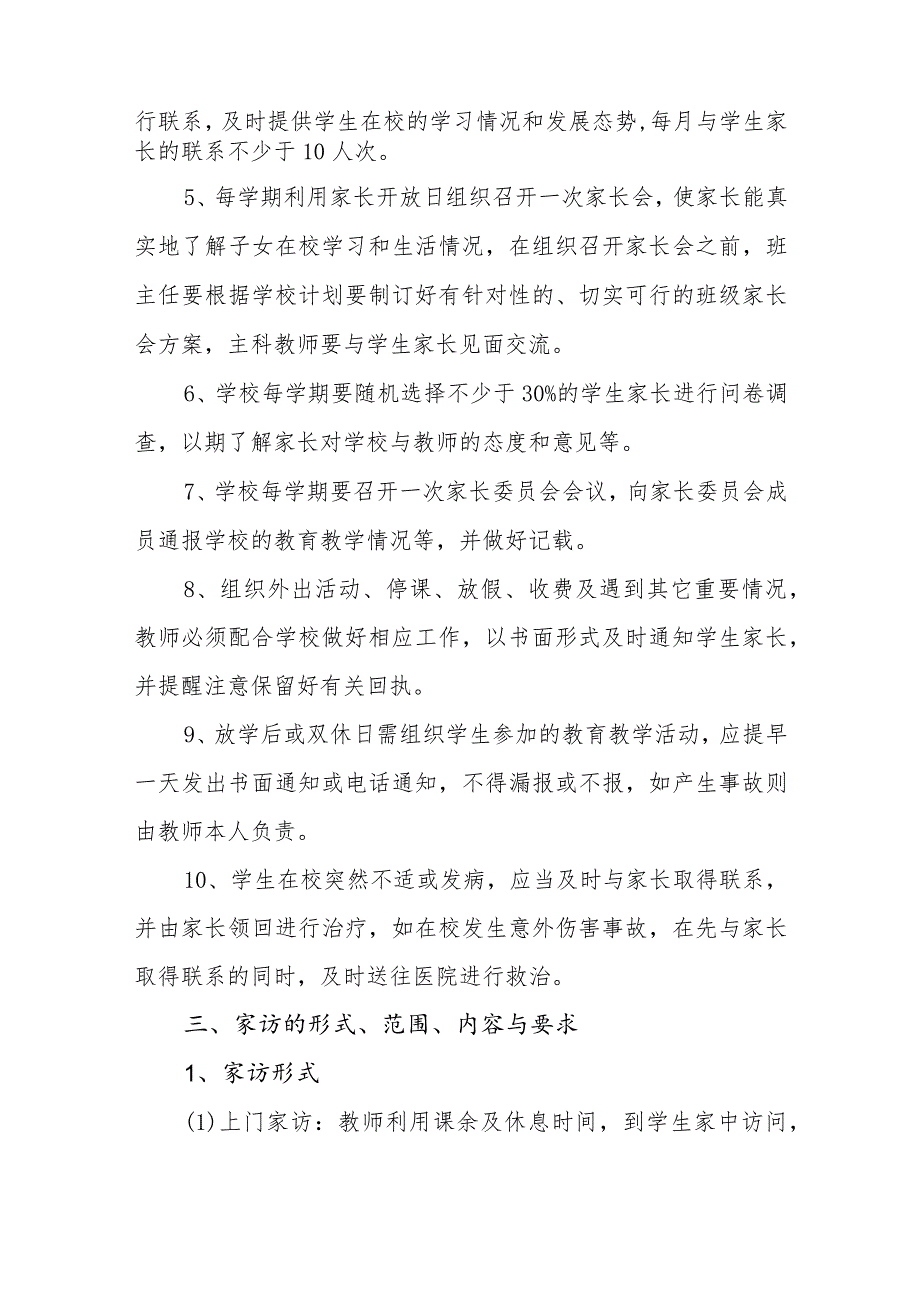 行联系，及时提供学生在校的学习情况和发展态势,每月与学生家
长的联系不少于10人次。
5、每学期利用家长开放日组织召开一次家长会，使家长能真
实地了解子女在校学习和生活情况，在组织召开家长会之前，班
主任要根据学校计划要制订好有针对性的、切实可行的班级家长
会方案，主科教师要与学生家长见面交流。
6、学校每学期要随机选择不少于30%的学生家长进行问卷调
查，以期了解家长对学校与教师的态度和意见等。
7、学校每学期要召开一次家长委员会会议，向家长委员会成
员通报学校的教育教学情况等，并做好记载。
8、组织外出活动、停课、放假、收费及遇到其它重要情况，
教师必须配合学校做好相应工作，以书面形式及时通知学生家长，
并提醒注意保留好有关回执。
9、放学后或双休日需组织学生参加的教育教学活动，应提早
一天发出书面通知或电话通知，不得漏报或不报，如产生事故则
由教师本人负责。
10、学生在校突然不适或发病，应当及时与家长取得联系，
并由家长领回进行治疗，如在校发生意外伤害事故，在先与家长
取得联系的同时，及时送往医院进行救治。
三、家访的形式、范围、内容与要求
1、家访形式
(1)上门家访：教师利用课余及休息时间，到学生家中访问，